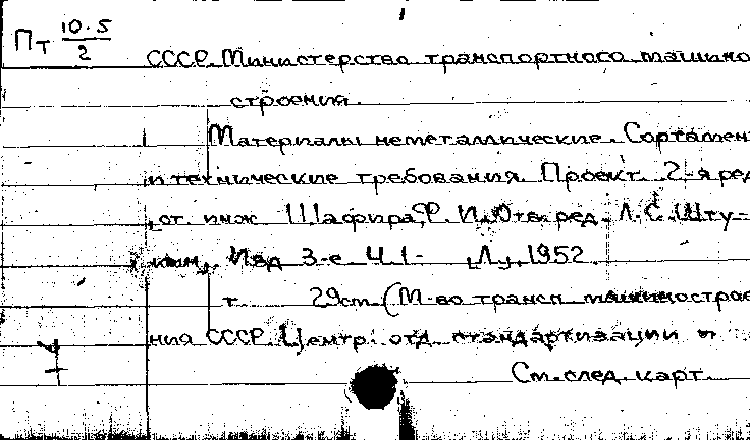 Пт 10.5/2
СССР. Министерство транспортного машино
строения.
Материалы неметаллические. Сортамен
и технические требования. Проект. 2-я ред
от. инж Шафира, Ф. И. Отв. ред. Л. С. Шту-
Изд 3-е Ч. 1- Л., 1952.
т. 29см. (М-во трансп машинострое
ния СССР. Центр. отд. стандартизации и
См. след. карт.